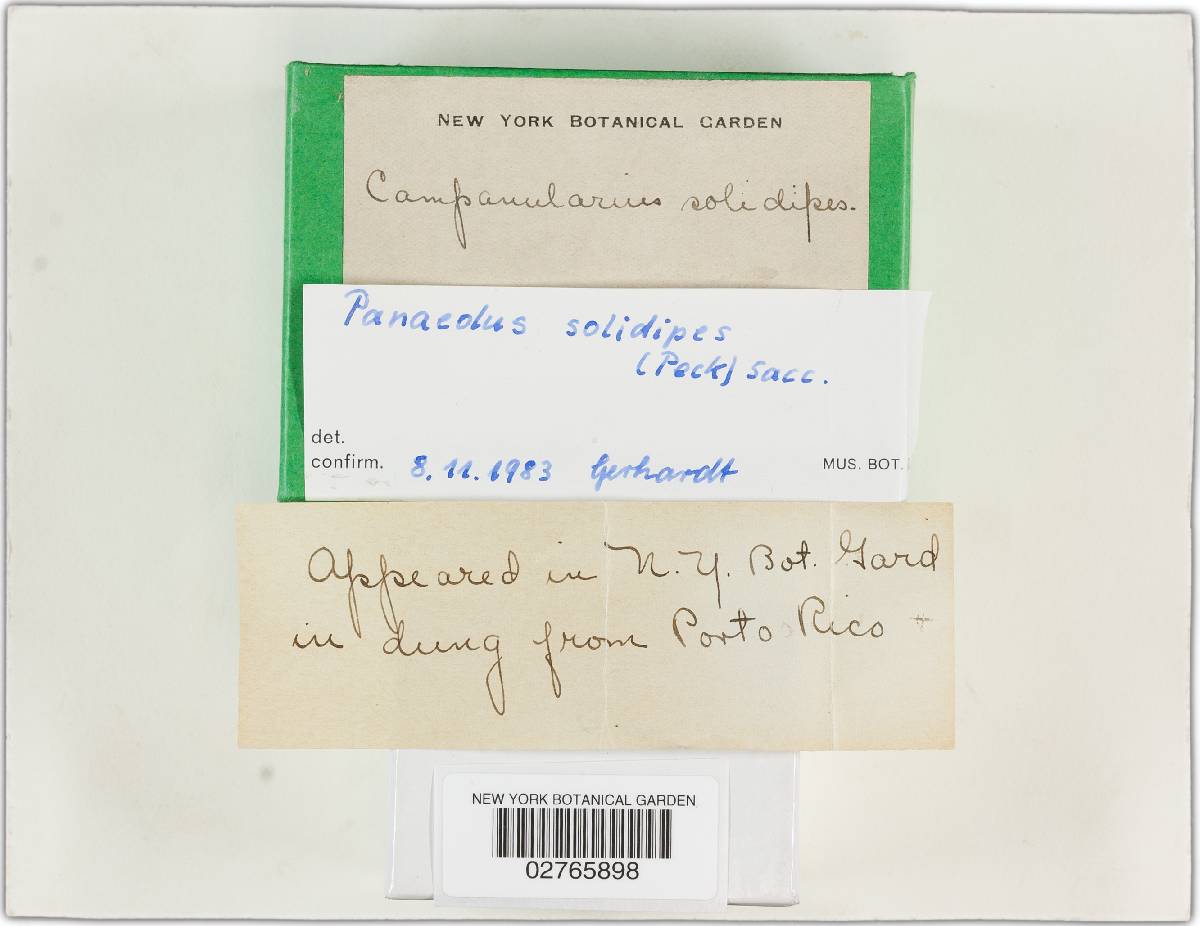 NEW YORK BOTANICAL GARDEN
Campanularius solidipes.
Panaeolus solidipes
(Peck) Sacc.
det.
confirm. 8.11.1983 Gerhardt MUS. BOT.
Appeared in N. Y. Bot. Gard
in dung from Porto Rico
NEW YORK BOTANICAL GARDEN
02765898